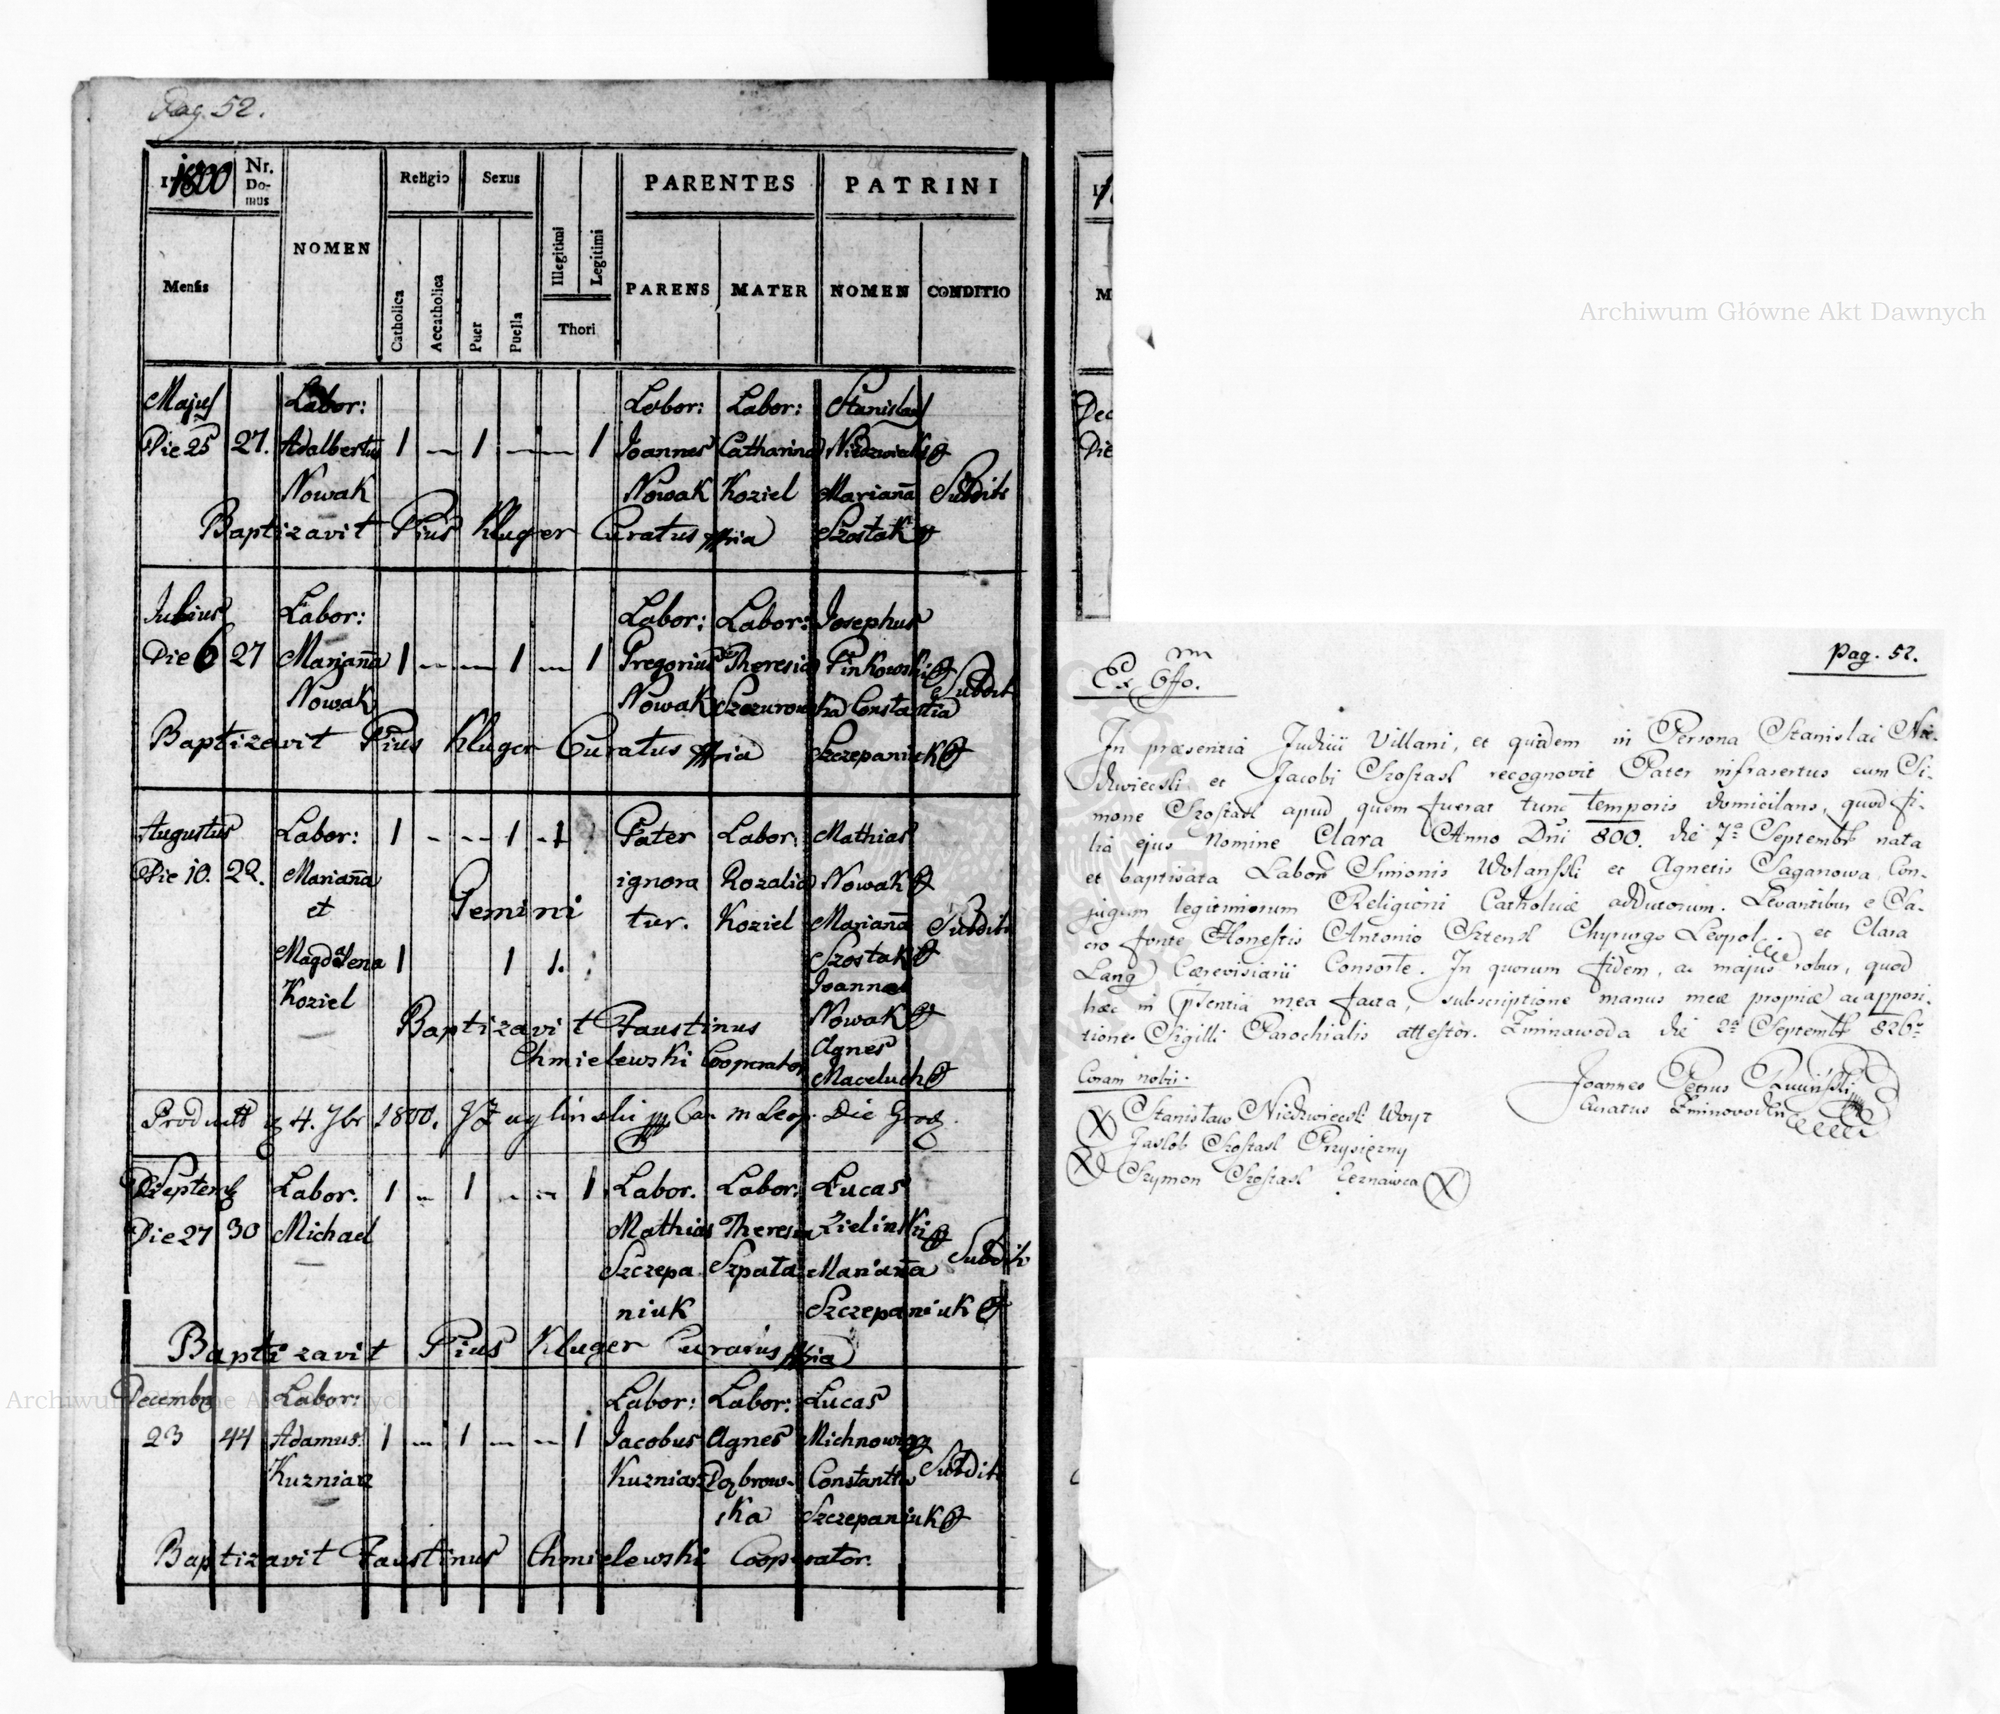 Pag. 52.
1800 Nr. Domus NOMEN Religio Sexus Illegitimi Legitimi Thori PARENTES PATRINI
Mensis Catholica Accatholica Puer Puella PARENS MATER NOMEN CONDITIO
Majus Labor: Labor: Labor: Stanislaus
Die 25 27. Adalbertus 1 — 1 — — 1 Joannes Catharina Niedzwiecki
Nowak Nowak Koziel Marianna Subditi
Baptizavit Pius Kluger Curatus mpria Szostak
Julius Labor: Labor: Labor: Josephus
Die 6 27 Marjanna 1 — — 1 — 1 Gregorius Theresia Pinkowski
Nowak Nowak Szczurowska Constantia Subditi
Baptizavit Pius Kluger Curatus mpria Szczepaniuk
Augustus Labor: 1 - - - 1 - 1 Pater Labor: Mathias
Die 10. 22. Marianna ignora Rozalia Nowak
et Gemini tur. Koziel Marianna Subditi
Magdalena 1 1 1. Szostak
Koziel Joannes
Baptizavit Faustinus Nowak
Chmielewski Cooperator Agnes
Maceluch
4. 7br 1800.
Septemb Labor. 1 — 1 — — 1 Labor. Labor: Lucas
Die 27 30 Michael Mathias Theresia Zielinski
Szczepa Szpata Marianna Subditi
niuk Szczepaniuk
Baptizavit Pius Kluger Curatus mpria
Decembr Labor: Labor: Labor: Lucas
23 44 Adamus 1 — 1 — — 1 Jacobus Agnes Michnowicz
Kuzniar Kuzniar Dąbrow- Constantia Subditi
ska Szczepaniuk
Baptizavit Faustinus Chmielewski Cooperator.
Pag. 52.
Ex Offo.
In præsentia Judicii Villani, et quidem in Persona Stanislai Nie-
dzwiecki et Jacobi Szostak recognovit Pater infrasertus cum Si-
mone Szostak apud quem fuerat tunc temporis domicilans, quod fi-
lia ejus Nomine Clara Anno Dni 800. die 7a Septembr nata
et baptisata Labor Simonis Wolanski et Agnetis Saganowa, Con-
jugum legitimorum Religioni Catholicæ addutorum. Levantibus e Sa-
cro fonte Honestis Antonio Sztenzl Chyrurgo Leopol. et Clara
Lang Cærevisiarii Consorte. In quorum fidem, ac majus robur, quod
hæc in psentia mea facta, subscriptione manus meæ propriæ ac apposi-
tione Sigilli Parochialis attestor. Zimnawoda die 2a Septembr 826.
Coram nobis.
Joannes Petrus
Curatus Zimnovodën
X Stanisław Niedzwiecki Woyt
Jakób Szostak Przysiężny
X Szymon Szostak X
Archiwum Główne Akt Dawnych
Archiwum Główne Akt Dawnych